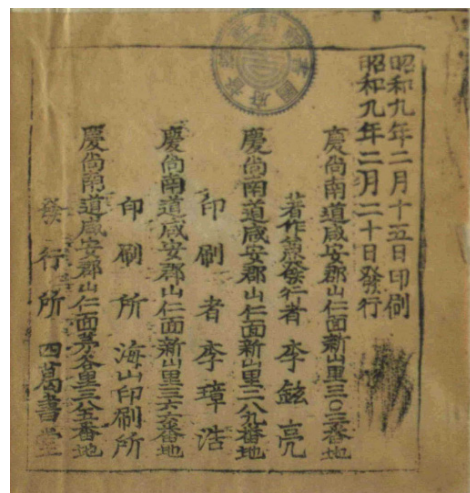 昭和九年二月十五日印刷
昭和九年二月二十日發行
慶尙南道咸安郡山仁面新山里三〇三番地
著作兼發行者 李鉉亮
慶尙南道咸安郡山仁面新山里二八九番地
印刷者 李璋浩
慶尙南道咸安郡山仁面新山里三六番地
印刷所 海山印刷所
慶尙南道咸安郡山仁面茅谷里三八五番地
發行所 四葛書堂